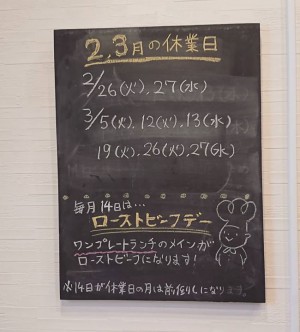 2,3月の休業日
2/26(火).27(水)
3/5(火).12(火).13(水)
19(火).26(火).27(水)
毎月14日は…
ローストビーフデー
ワンプレートランチのメインが
ローストビーフになります!
※14日が休業日の月は前倒しになります。